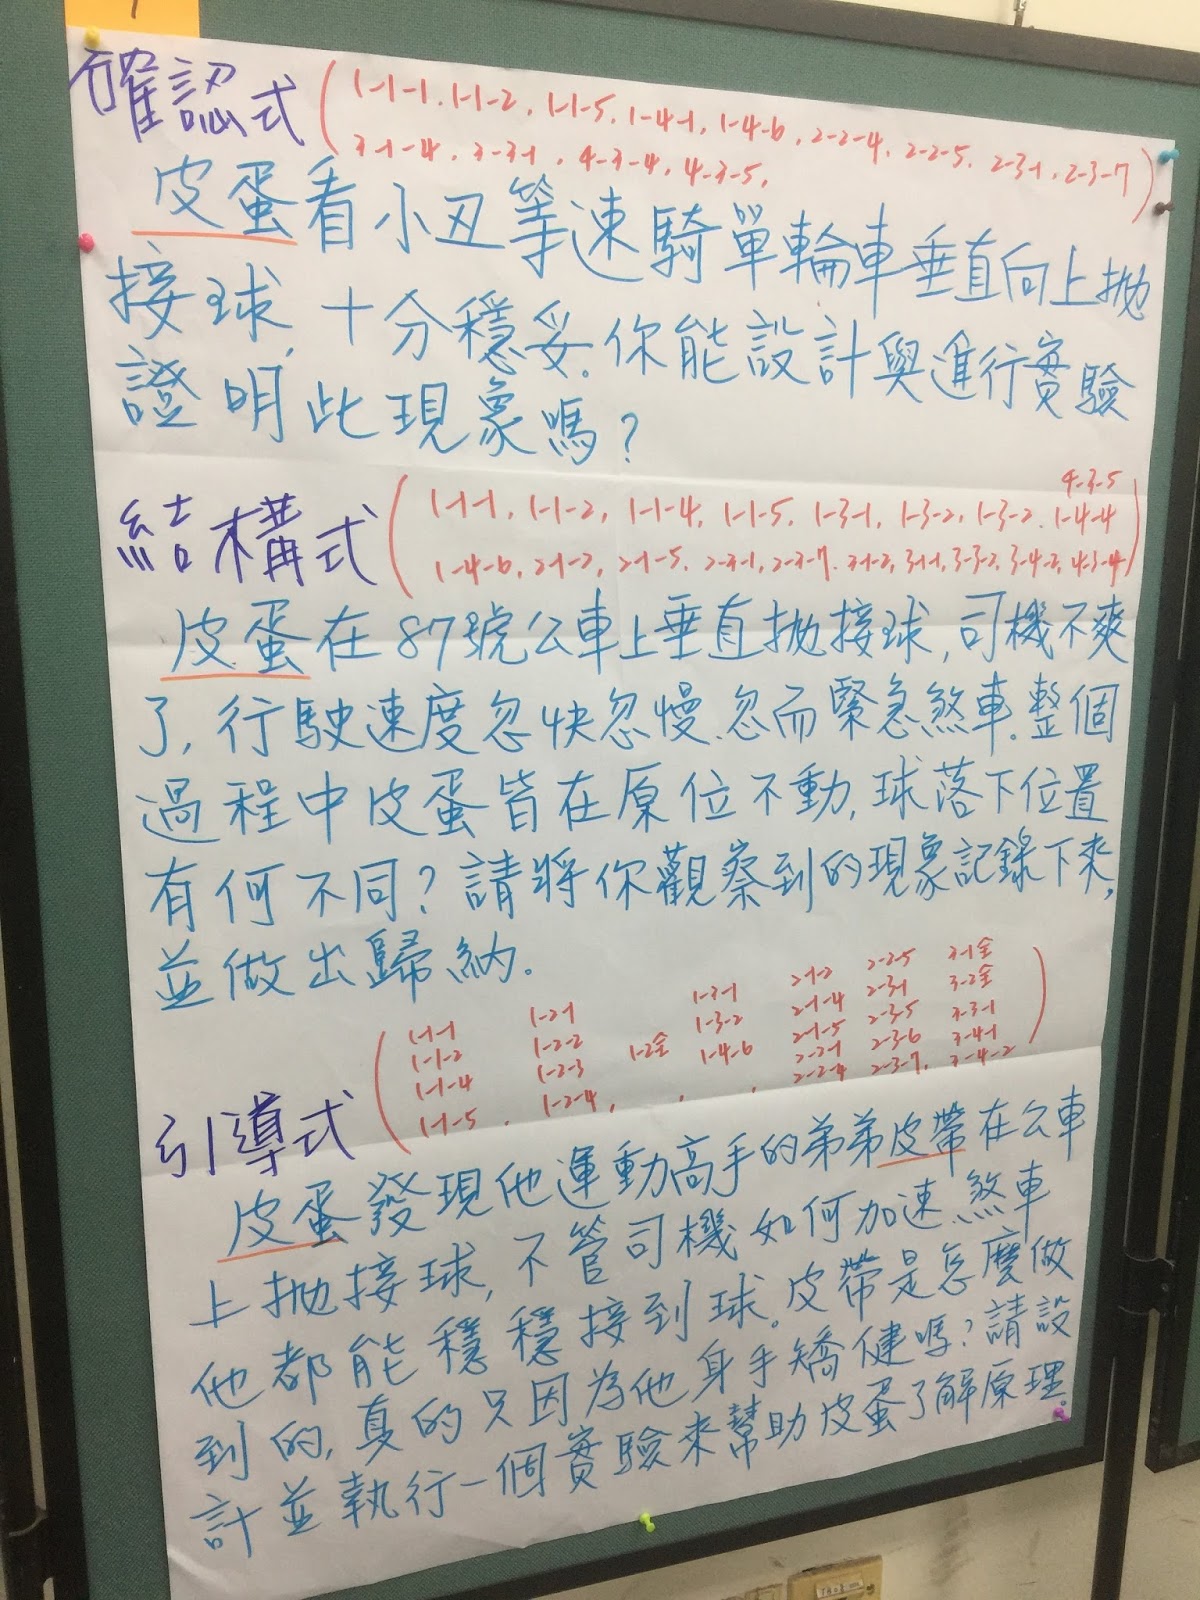 確認式 (1-1-1, 1-1-2, 1-1-5, 1-4-1, 1-4-6, 2-2-4, 2-2-5, 2-3-1, 2-3-7
3-1-4, 3-3-1, 4-3-4, 4-3-5,)
皮蛋看小丑等速騎單輪車垂直向上拋
接球,十分穩妥.你能設計與進行實驗
證明此現象嗎?
4-3-5
結構式 (1-1-1, 1-1-2, 1-1-4, 1-1-5, 1-3-1, 1-3-2, 1-3-2, 1-4-4
1-4-6, 2-1-2, 2-1-5, 2-3-1, 2-3-7, 3-1-2, 3-1-1, 3-3-2, 3-4-2, 4-3-4)
皮蛋在87號公車上垂直拋接球,司機不爽
了,行駛速度忽快忽慢、忽而緊急煞車.整個
過程中皮蛋皆在原位不動,球落下位置
有何不同?請將你觀察到的現象記錄下來,
並做出歸納.
引導式
(1-1-1 1-2-1 1-3-1 2-1-2 2-2-5 3-1全
1-1-2 1-2-2 1-2全 1-3-2 2-1-4 2-3-1 3-2全
1-1-4 1-2-3 1-4-6 2-1-5 2-3-5 3-3-1
1-1-5, 1-2-4, 2-2-1 2-3-6 3-4-1
2-2-4 2-3-7, 3-4-2)
皮蛋發現他運動高手的弟弟皮帶在公車
上拋接球,不管司機如何加速、煞車
他都能穩穩接到球.皮帶是怎麼做
到的,真的只因為他身手矯健嗎?請設
計並執行一個實驗來幫助皮蛋了解原理.